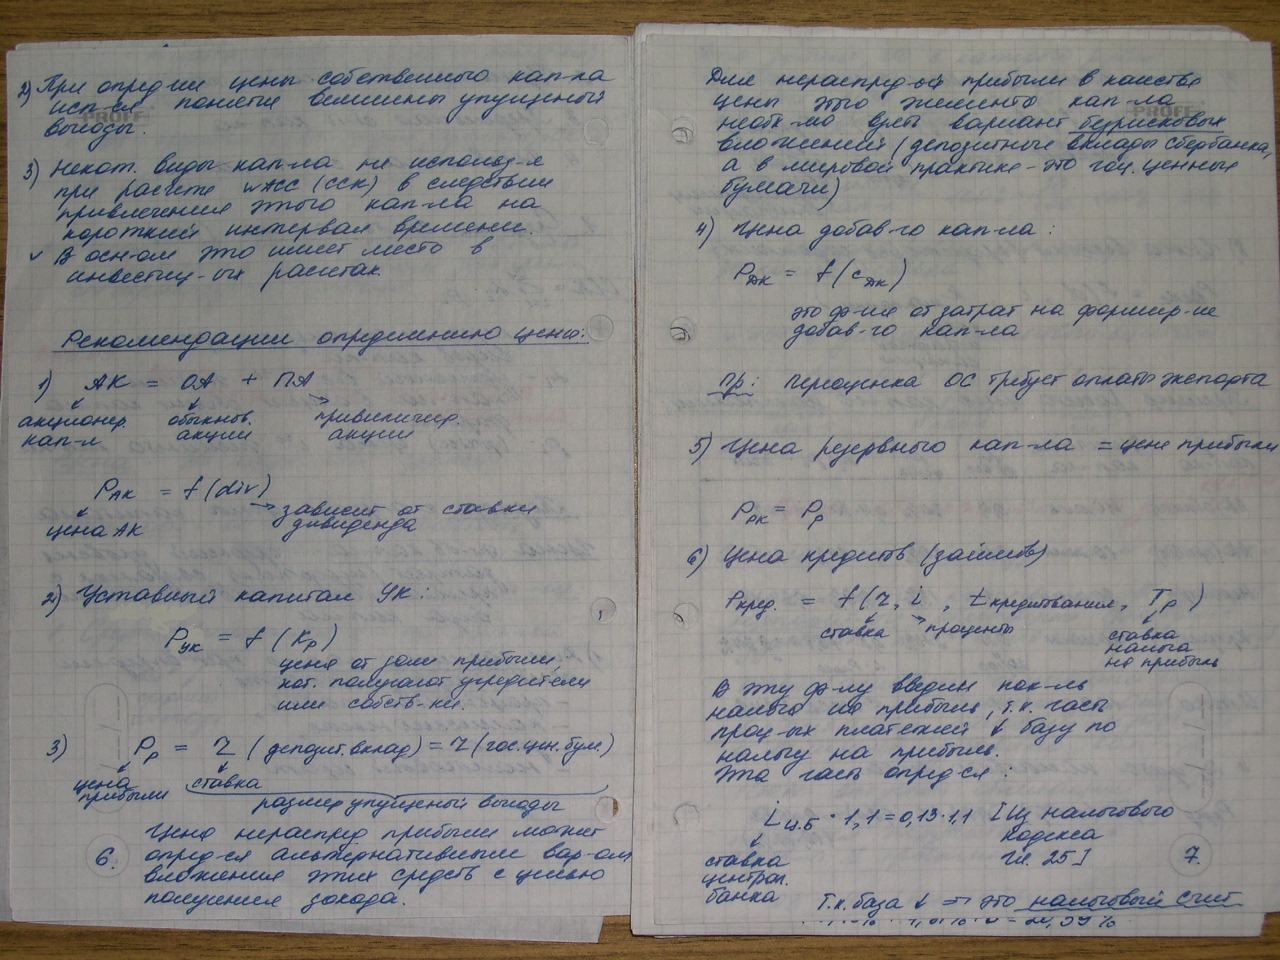 2) При опред-ии цены собственного кап-ла
исп-ся понятие величины упущеной
выгоды.
3) Некот. виды кап-ла не использ-я
при расчете WACC (ССК) в следствии
привлечения этого кап-ла на
короткий интервал времени.
v В осн-ом это имеет место в
инвестиц-ых расчетах
Рекомендации определению цены:
1) АК = ОА + ПА
акционер. обыкнов. привиличир.
кап-л акции акции
P АК = f (div)
цена АК → зависит от ставки
дивиденда
2) Уставный капитал УК:
P УК = f (Kp)
цена от доли прибыли,
кот. получают учредители
или собств-ки.
3) Pp = r (депозит. вклад) = r (гос. цен. бум.)
цена ставка
прибыли размер упущеный выгоды
Цена нераспред. прибыли может
6. опред-ся альтернативным вар-ом
вложения этих средств с целью
получения дохода.
PROFF
Для нераспред-ой прибыли в качестве
цены этого элемента кап-ла
необх-мо взять вариант безрисковых
вложений (депозитные вклады сбербанка,
а в мировой практике - это гос. ценные
бумаги)
4) Цена добав-го кап-ла:
P ДК = f (C ДК)
это ф-ия от затрат на формир-ие
добав-го кап-ла
Пр: Переоценка ОС требует оплаты экспорта
5) Цена резервного кап-ла = цене прибыли
P РК = Pp
6) Цена кредитов (займов)
P кред. = f (r, i, t кредитования, Tp)
ставка → проценты ставка
налога
на прибыль
В эту ф-лу введен пок-ль
налога на прибыль, т.к. часть
проц-ых платежей ↓ базу по
налогу на прибыль.
Эта часть опред-ся:
i ц.б · 1,1 = 0,13 · 1,1 [Из налогового
кодекса
гл. 25]
ставка
централ.
банка
7.
Т.к. база ↓ ⇒ это налоговый счит